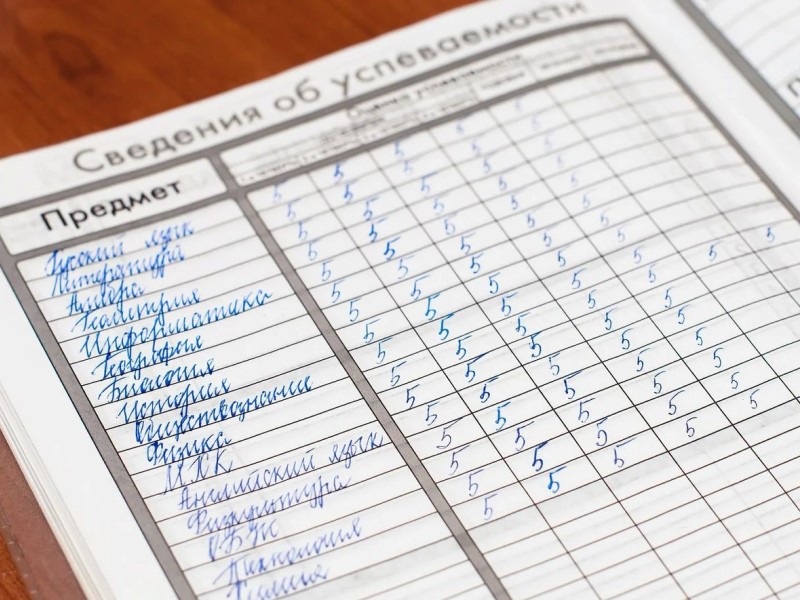 Сведения об успеваемости
Предмет
Оценка успеваемости
Русский язык 5 5 5 5 5
Литература 5 5 5 5 5
Алгебра 5 5 5 5 5
Геометрия 5 5 5 5 5
Информатика 5 5 5 5 5
География 5 5 5 5 5
Биология 5 5 5 5 5
История 5 5 5 5 5
Обществознание 5 5 5 5 5
Физика 5 5 5 5 5 5 5
МХК 5 5 5 5 5
Английский язык 5 5 5 5 5
Физкультура 5 5 5 5 5
ОБЖ 5 5 5 5 5
Технология 5 5 5 5 5
Химия 5 5 5 5 5